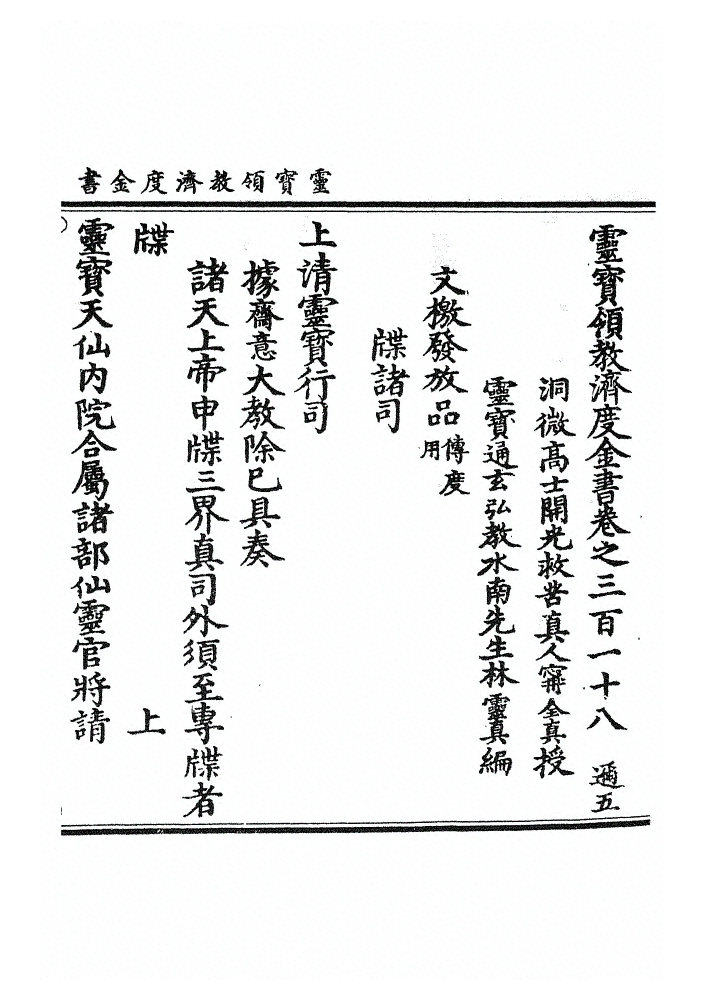 靈寶領教濟度金書
靈寶領教濟度金書卷之三百一十八 遐五
洞微高士開光救苦真人甯全真授
靈寶通玄弘教水南先生林靈真編
文檄發放品傳度用
牒諸司
上清靈寶行司
據齋意大教除已具奏
諸天上帝申牒三界真司外須至專牒者
牒 上
靈寶天仙內院合屬諸部仙靈官將請